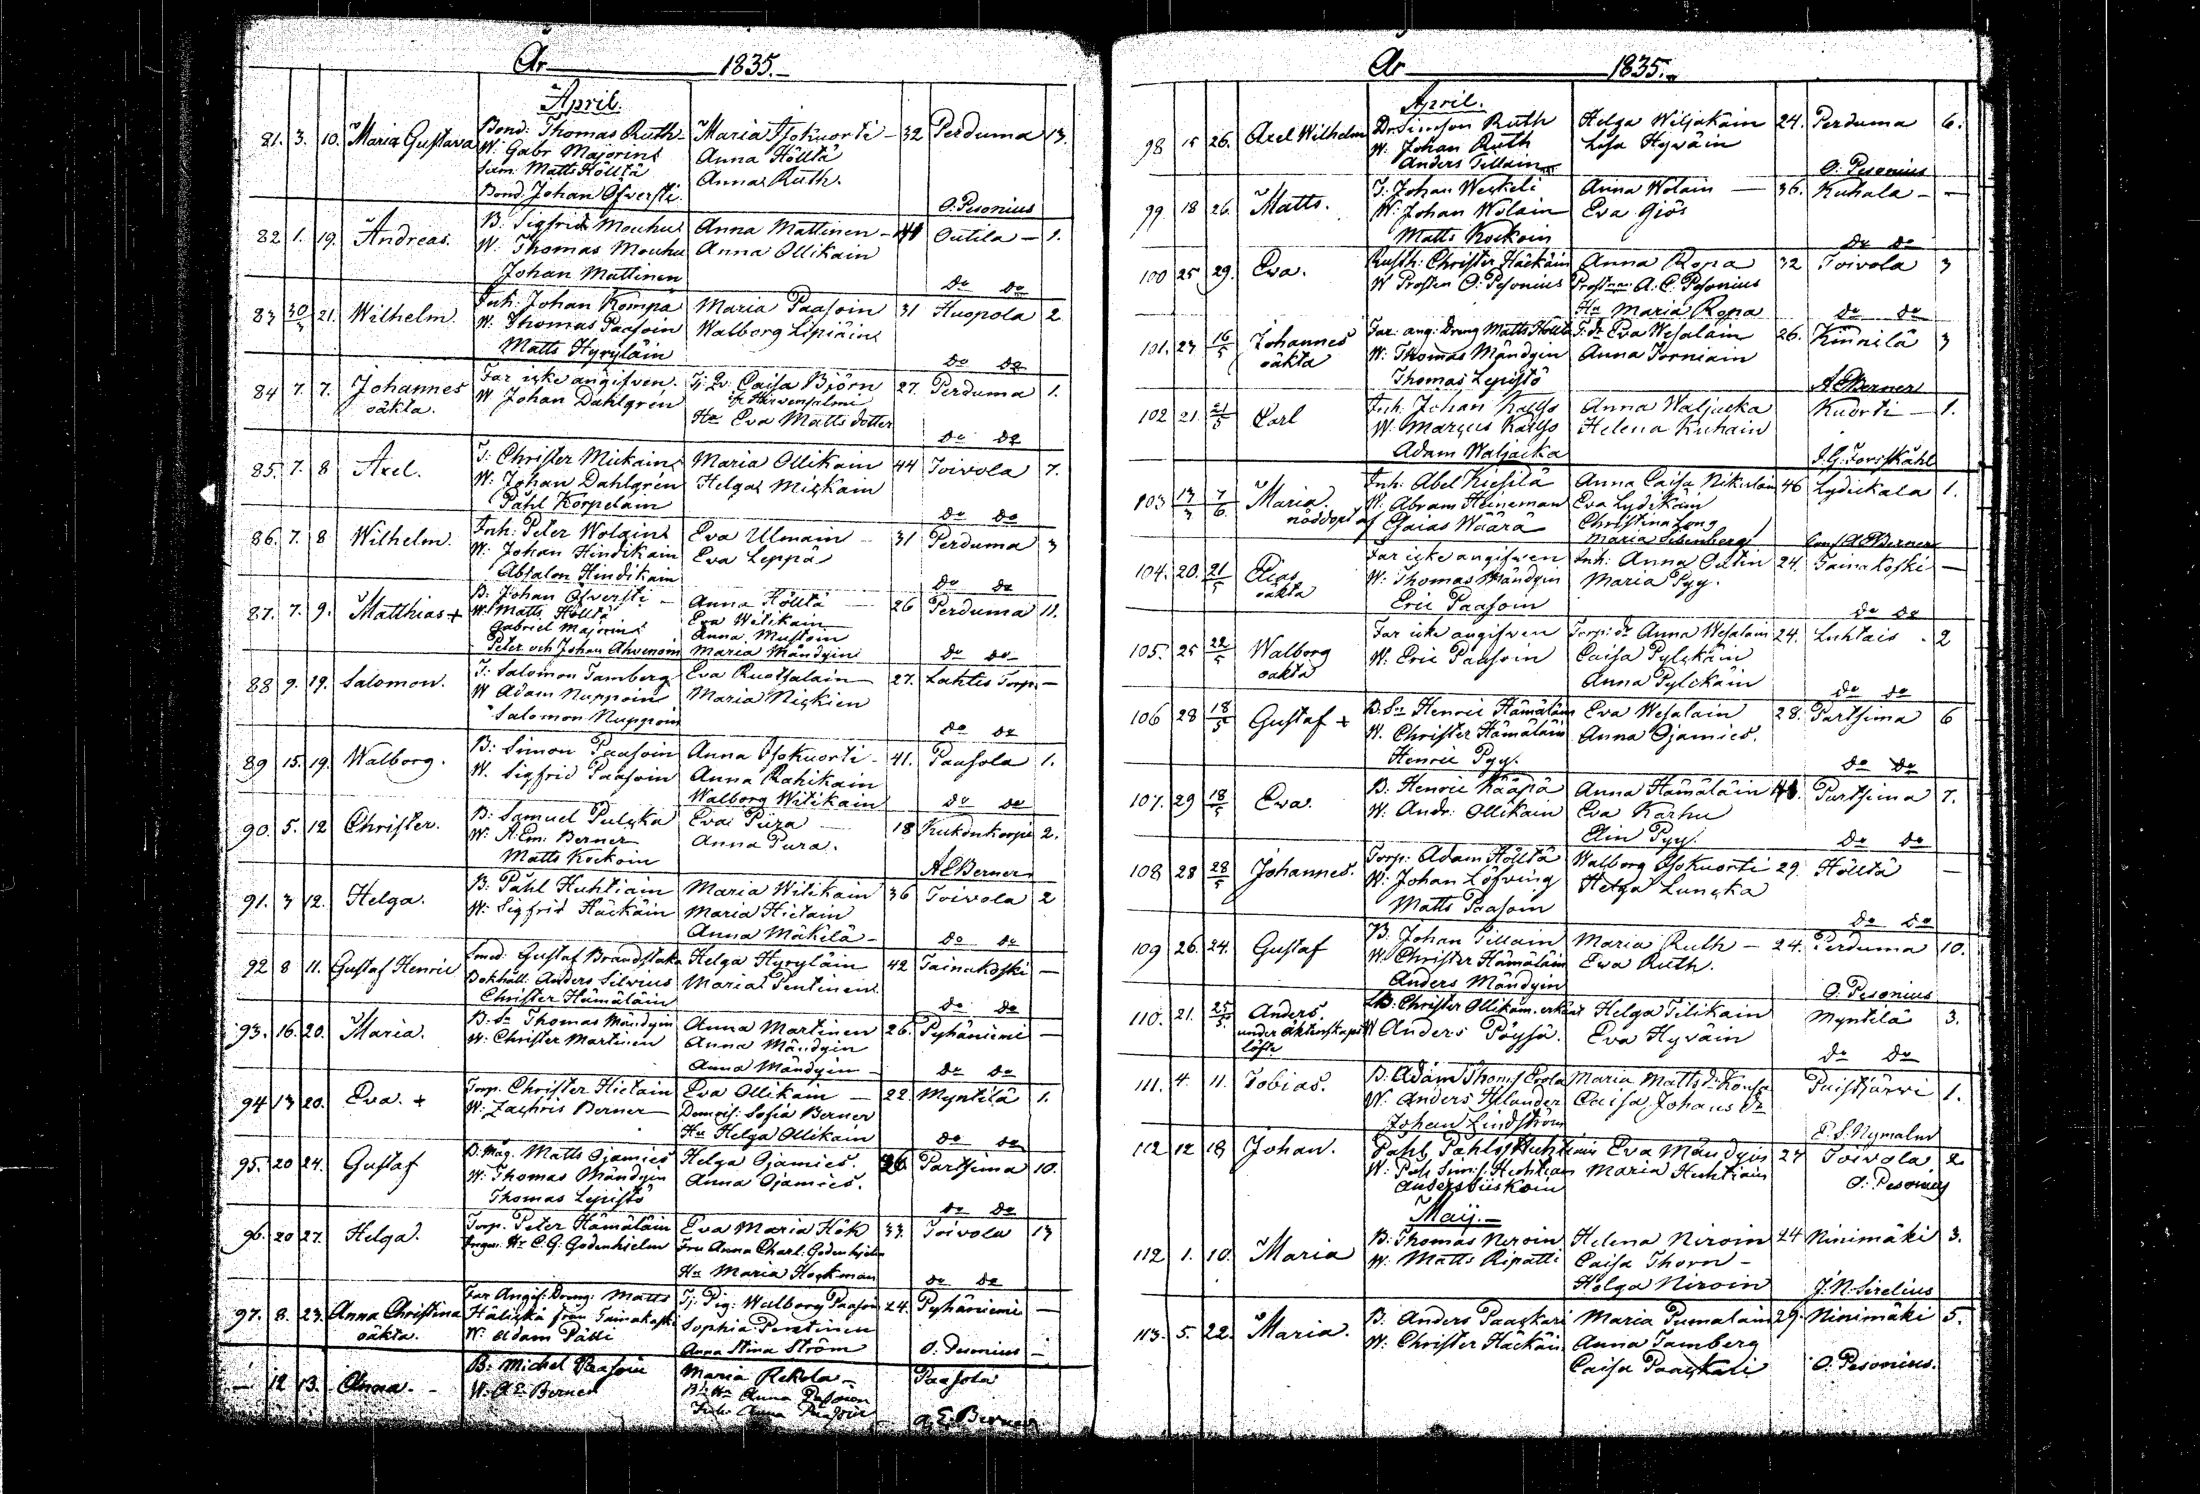 År 1835.
April.
81. 3. 10. Maria Gustava Bond: Thomas Ruth Maria Ojokuorti - 32 Perduma 13.
W: Gabr Majorins Anna Hölltä
Matts Hölltä Anna Ruth.
Bond. Johan Öfversti. O. Pesonius
82 1. 19. Andreas. B: Sigfrid Mouhu Anna Mattinen - 41 Outila - 1.
W. Thomas Mouhu Anna Ollikain
Johan Mattinen do do
83 30/3 21. Wilhelm. Inh: Johan Kompa Maria Paasoin 31 Huopola 2
W: Thomas Paasoin Walborg Lipiäin
Matts Hyryläin do do
84 7. 7. Johannes Far icke angifven. Caisa Björn 27. Perduma 1.
oäkta. W Johan Dahlgren fr Hirvensalmi
Hu Eva Matts dotter do do
85. 7. 8 Axel. T: Christer Mickain Maria Ollikain 44 Toivola 7.
W: Johan Dahlgren Helga Mickain
Påhl Korpelain do do
86. 7. 8 Wilhelm. Inh: Peter Wolain Eva Ulmain 31 Perduma 3
W: Johan Hindikain Eva Leppä
Absalon Hindikain do do
87. 7. 9. Matthias + B: Johan Öfversti - Anna Hölltä 26 Perduma 11.
W: Matts Hölltä Eva Witikain
Gabriel Majorins Anna Mustoin
Peter och Johan Ahvenoin Maria Mändyin do do
88 9. 19. Salomon. T: Salomon Tamberg Eva Ruotsalain 27. Lahtis Torp. -
W Adam Nuppoin Maria Nickien
Salomon Nuppoin do do
89 15. 19. Walborg. B: Simon Paasoin Anna Ojokuorti - 41. Paasola 1.
W. Sigfrid Paasoin Anna Rahikain
Walborg Witikain do do
90. 5. 12 Christer. B: Samuel Pulcka Eva Pura 18 Kukonkorpi 2.
W: A. Em. Berner Anna Pura.
Matts Kockoin AEBerner
91. 3 12. Helga. B: Påhl Huhtiain Maria Witikain 36 Toivola 2
W: Sigfrid Häckäin Maria Hietain
Anna Mäkelä - do do
92 8 11. Gustaf Henric Smed: Gustaf Brandstaka Helga Hyryläin 42 Tainakoski -
Bokhåll: Anders Silvius Maria Pentinen
Christer Hämäläin do do
93. 16. 20. Maria. B. Sn Thomas Mändyin Anna Martinen 26. Pyhäniemi -
W: Christer Martinen Anna Mändyin
Anna Mändyin - do do
94 13 20. Eva. + Torp. Christer Hietain Eva Ollikain - 22 Myntilä 1.
W: Zachris Berner Demois: Sofia Berner
Hu Helga Ollikain do do
95. 20 24. Gustaf B. Måg. Matts Ojamies Helga Ojamies. 26 Partsima 10.
W: Thomas Mändyin Anna Ojamies.
Thomas Lepistö do do
96. 20 27. Helga. Torp. Peter Hämäläin Eva Maria Hök 33. Toivola 13
Hr C. G: Godenhjelm Fru Anna Charl: Godenhjelm
Hu Maria Hockman do do
97. 8. 23. Anna Christina Far Angif: Dreng: Matts Tj: Pig: Walborg Paasoin 24. Pyhäniemi -
oäkta. Hälickä från Tainakoski Sophia Pentinen
W. Adam Pätti Anna Stina Ström O. Pesonius -
- 12 13. Anna. - B: Michel Paasoin Maria Rekola - Paasola
W. A E Berner Anna Paasoin
Anna Paasoin A. E. Berner
År 1835.
April.
98 15 26. Axel Wilhelm Dr Simson Ruth Helga Wiljakain 24. Perduma 6.
W: Johan Ruth Lisa Hyväin
Anders Tillain O. Pesonius
99 18 26. Matts. T: Johan Weckeli Anna Wolain - 36. Kuhala - -
W: Johan Wolain Eva Giös
Matts Kockoin do do
100 25 29. Eva. Rusth: Christer Häckäin Anna Ropa 32 Toivola 3
W Prosten O. Pesonius Prostinnan A. C. Pesonius
Hu Maria Ropa do do
101. 23 16/5 Johannes Far: ang: Dreng Matts Höllta T: dr Eva Wesalain 26. Kinnilä 3
oäkta W: Thomas Mändyin Anna Torniain
Thomas Lepistö AEBerner
102 21. 21/5 Carl Inh: Johan Katso Anna Waljacka Kuorti - 1.
W. Marcus Katso Helena Kuhain
Adam Waljacka J. G. Forsskåhl
103 13/3 7/6 Maria. Inh: Abel Kiesilä Anna Caisa Nikulain 46 Lydickala 1.
nöddöpt af W. Abram Heineman Eva Lydikäin
Esaias Wäärä Christina Long
Maria Silenberg AEBerner
104. 20. 21/5 Elias Far icke angifven Inh: Anna Outin 24. Tainakoski -
oäkta W: Thomas Mändyin Maria Pyy.
Eric Paasoin do do
105. 25 22/5 Walborg Far icke angifven Torp: dr Anna Wesalain 24. Luhtais - 2
oäkta W: Eric Paasoin Caisa Pylckäin
Anna Pylckäin do do
106 28 18/5 Gustaf + B. Sn Henric Hämäläin Eva Wesalain 28. Partsima 6
W. Christer Hämäläin Anna Ojamies.
Henric Pyy. do do
107. 29 18/5 Eva. B. Henric Kääpä Anna Hämäläin 41. Partsima 7.
W. Andr: Ollikain Eva Karhu
Elin Pyy. do do
108 28 28/5 Johannes. Torp: Adam Höllta Walborg Ojokuorti 29 Höllta -
W: Johan Löfving Helga Luncka
Matts Paasoin do do
109 26. 24. Gustaf B. Johan Tillain Maria Ruth - 24. Perduma 10.
W: Christer Hämäläin Eva Ruth.
Anders Mändyin O. Pesonius
110. 21. 25/5. Anders. B: Christer Ollikain. erkänt Helga Tilikain Myntilä 3.
under äktenskaps W Anders Pöysä. Eva Hyväin
löfte do do
111. 4. 11. Tobias. B: Adam Thoms Erola Maria Matts dr Kousa Puistjärvi 1.
W: Anders Helander Caisa Johans dr
Johan Lindström E. S. Nymalm
112 12 18 Johan. Påhl Påhls Huhtiain Eva Mändyin 27 Toivola. 2
W: Påh Sims: Huhtiain Maria Huhtiain
Anders Siiskoin O. Pesonius
Maij. -
112 1. 10. Maria B: Thomas Niroin Helena Niroin 24 Ninimäki 3.
W. Matts Ripatti Caisa Thorn -
Helga Niroin J. N. Sirelius
113. 5. 22. Maria. B. Anders Paackari Maria Pumalain 29. Ninimäki 5.
W. Christer Häckäin Anna Tamberg
Caisa Paackari O. Pesonius.